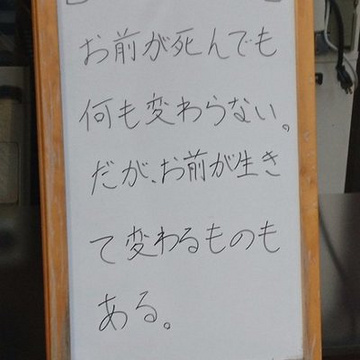 お前が死んでも
何も変わらない。
だが、お前が生き
て変わるものも
ある。